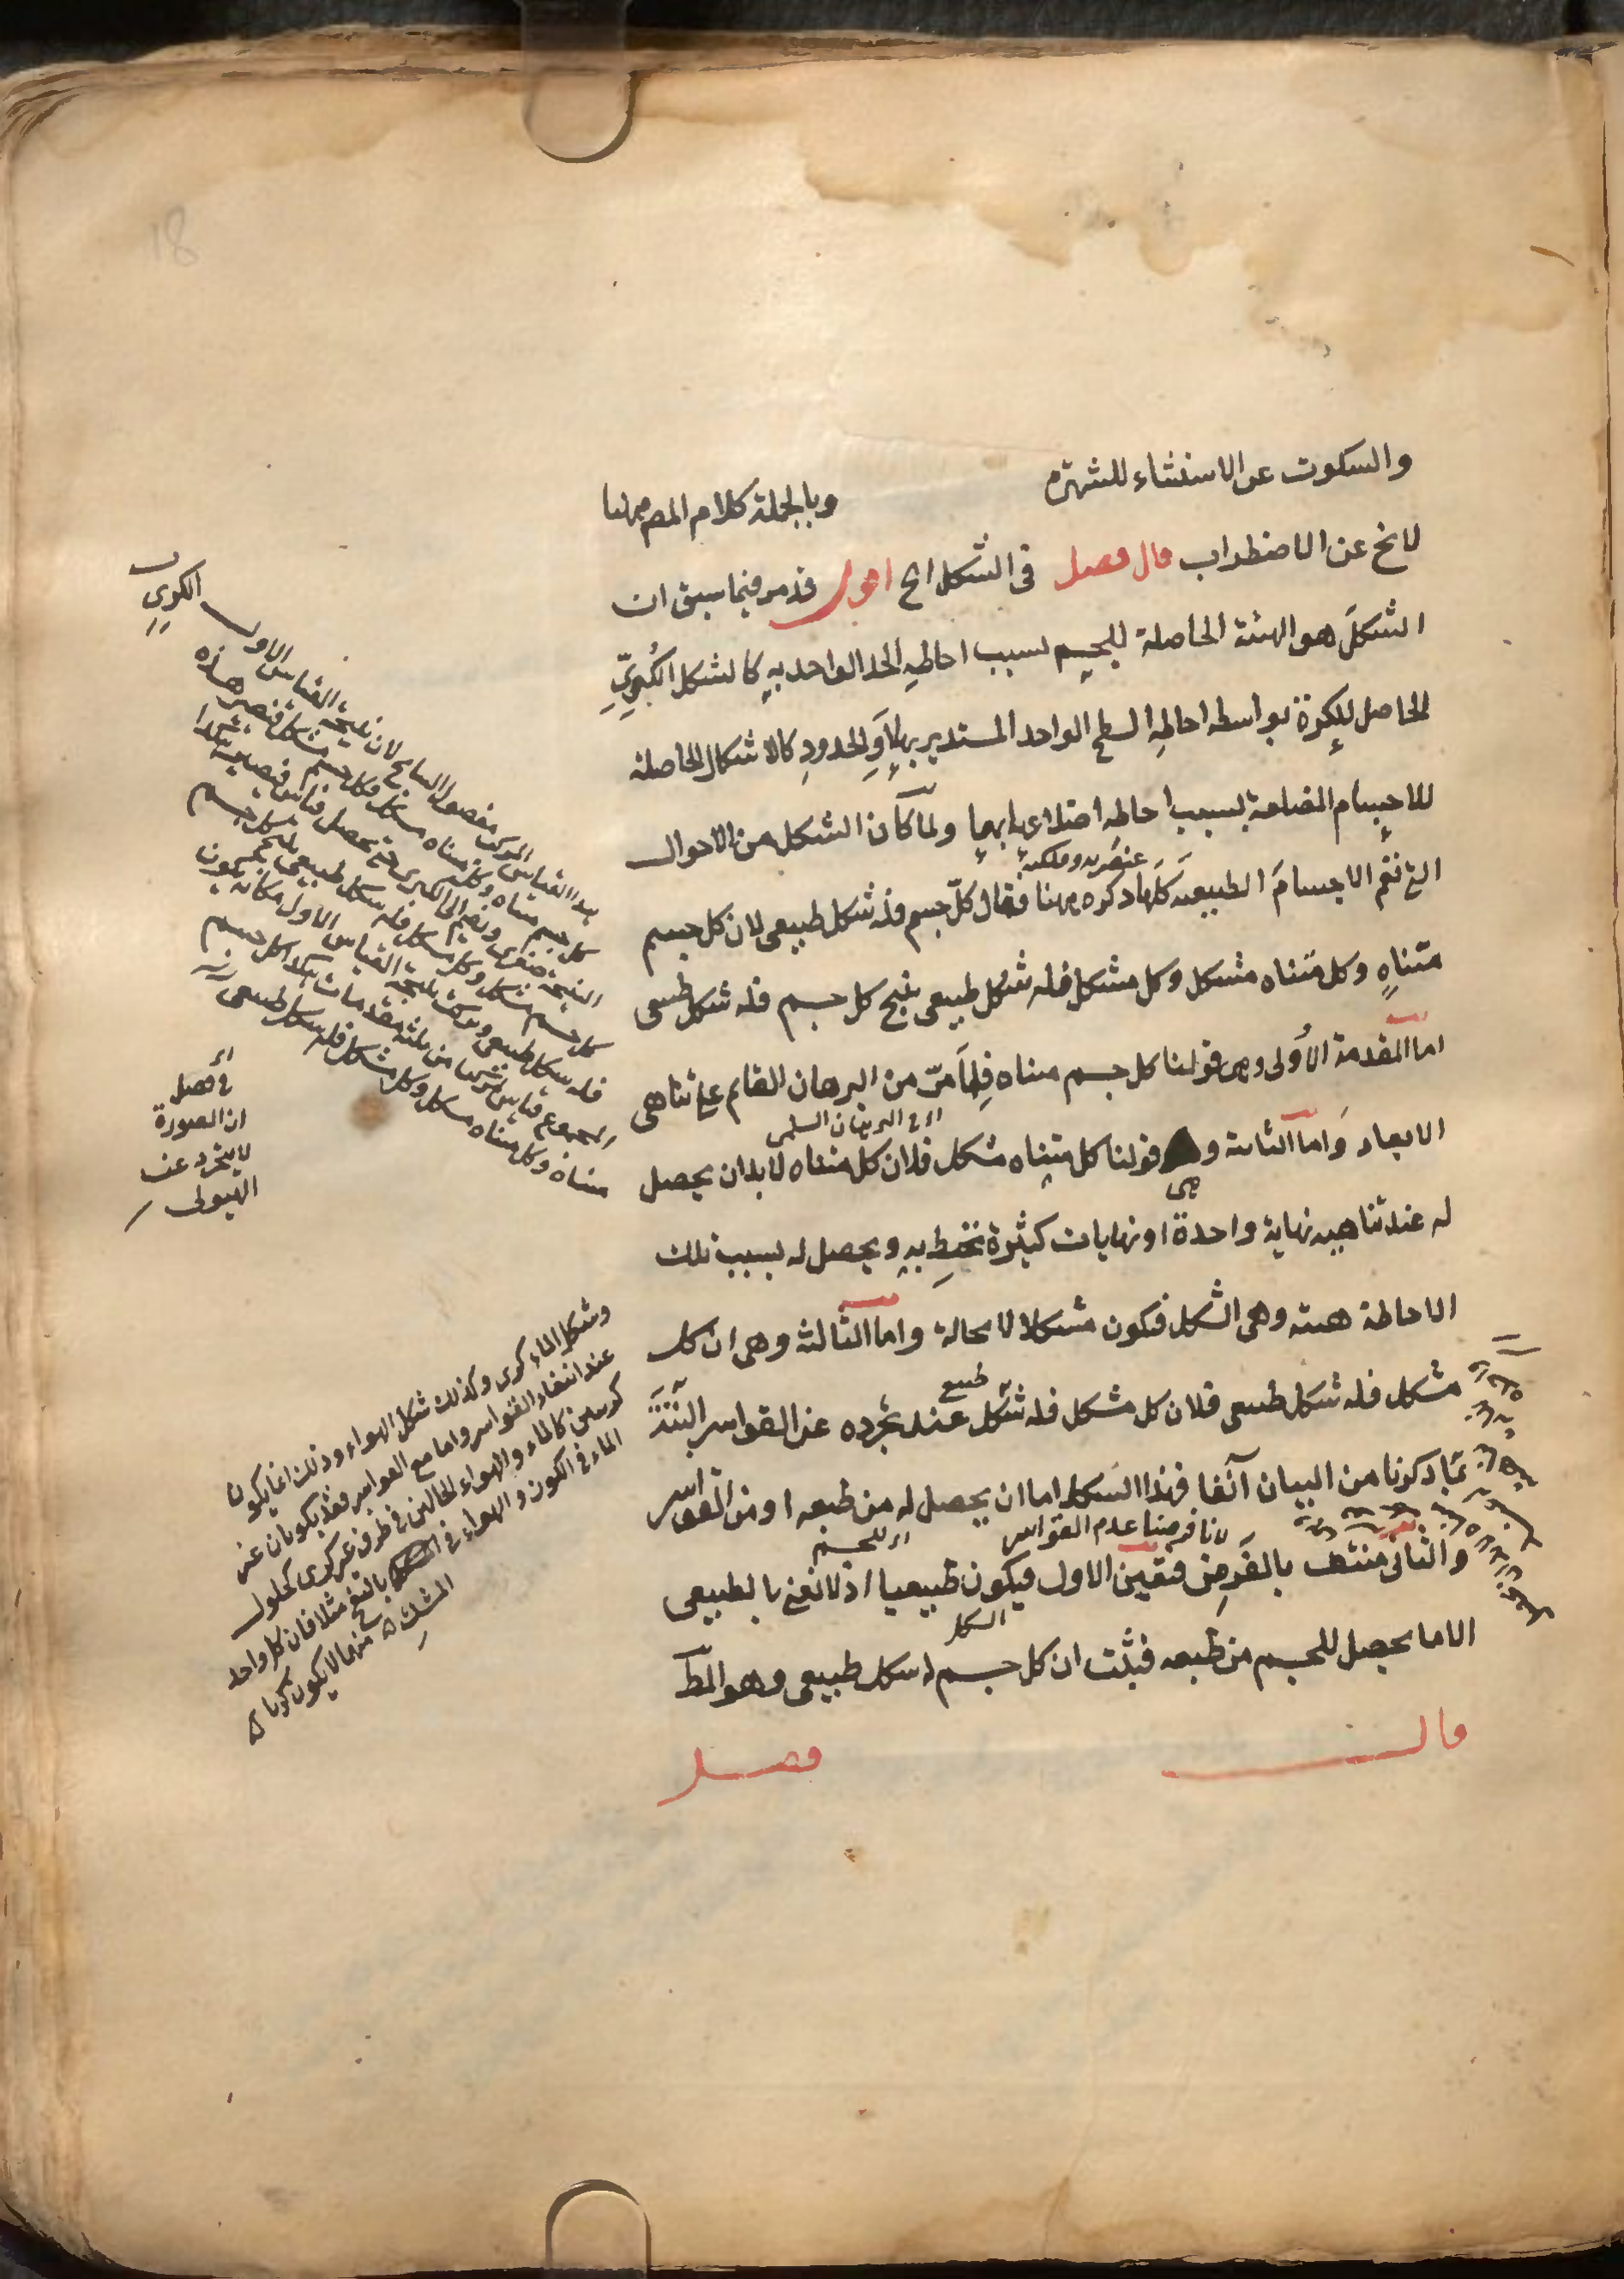 والسكوت عن الاستثناء للشهرة وبالجملة كلام المص ههنا
لا يخ عن الاضطراب قال فصل فى الشكل الخ اقول قد مر فيما سبق ان
الشكل هو الهيئة الحاصلة للجسم بسبب احاطة الحد الواحد به كالشكل الكُرِىّ
الحاصل للكرة بواسطة احاطة السطح الواحد المستدير بها او الحدود كالاشكال الحاصلة
للاجسام المضلعة بسبب احاطة اضلاعها بها ولما كان الشكل من الاحوال
عنصريه وفلكية
التى تعم الاجسام الطبيعية كلها ذكره ههنا فقال كل جسم فله شكل طبيعى لان كل جسم
متناهٍ وكل متناه مشكل وكل مشكل فله شكل طبيعى ينتج كل جسم فله شكل طبيعى
اما المقدمة الاُولى وهى قولنا كل جسم متناه فلِما مرّ من البرهان القايم على تناهى
اى البرهان السلمى
الابعاد واما الثانية وهى قولنا كل متناه مشكل فلان كل متناه لا بد ان يحصل
له عند تناهيه نهاية واحدة او نهايات كثيرة تحيط به ويحصل له بسبب تلك
الاحاطة هيئة وهى الشكل فيكون مشكلا لا محالة واما الثالثة وهى ان كل
مشكل فله شكل طبيعى فلان كل مشكل فله شكل عند تجرده عن القواسر البتة
طبيعى
بما ذكرنا من البيان آنفا فهذا الشكل اما ان يحصل له من طبعه او من القواسر
لانا فرضنا عدم القواسر اى للجسم
والثانى منتف بالفرض فتعين الاول فيكون طبيعيا اذ لا نعنى بالطبيعى
الشكل
الا ما يحصل للجسم من طبعه فثبت ان كل جسم له شكل طبيعى وهو المط
قال فصل
الكرى
هذا القياس المركب مفصول النتايج لان نتيجة القياس الاول
كل جسم متناه وكل متناه مشكل فكل جسم مشكل فتصير هذه
النتيجة صغرى ونضم الى الكبرى حتى يحصل قياس فيصير هكذا
كل جسم مشكل وكل مشكل فله شكل طبيعى ينتج كل جسم
فله شكل طبيعى
متناه وكل متناه مشكل وكل مشكل فله شكل طبيعى
اى
فى فصل
ان الصورة
لا يتجرد عن
الهيولى
وشكل الماء كرى وكذلك شكل الهواء وذلك انما يكون
عند انتفاء القواسر واما مع القواسر فقد يكونان غير
كريين كالماء والهواء الحالين فى ظرف غير كرى كحلول
الماء فى الكون والهواء فى بالنفخ مثلا فان كل واحد
منهما لا يكون كريا